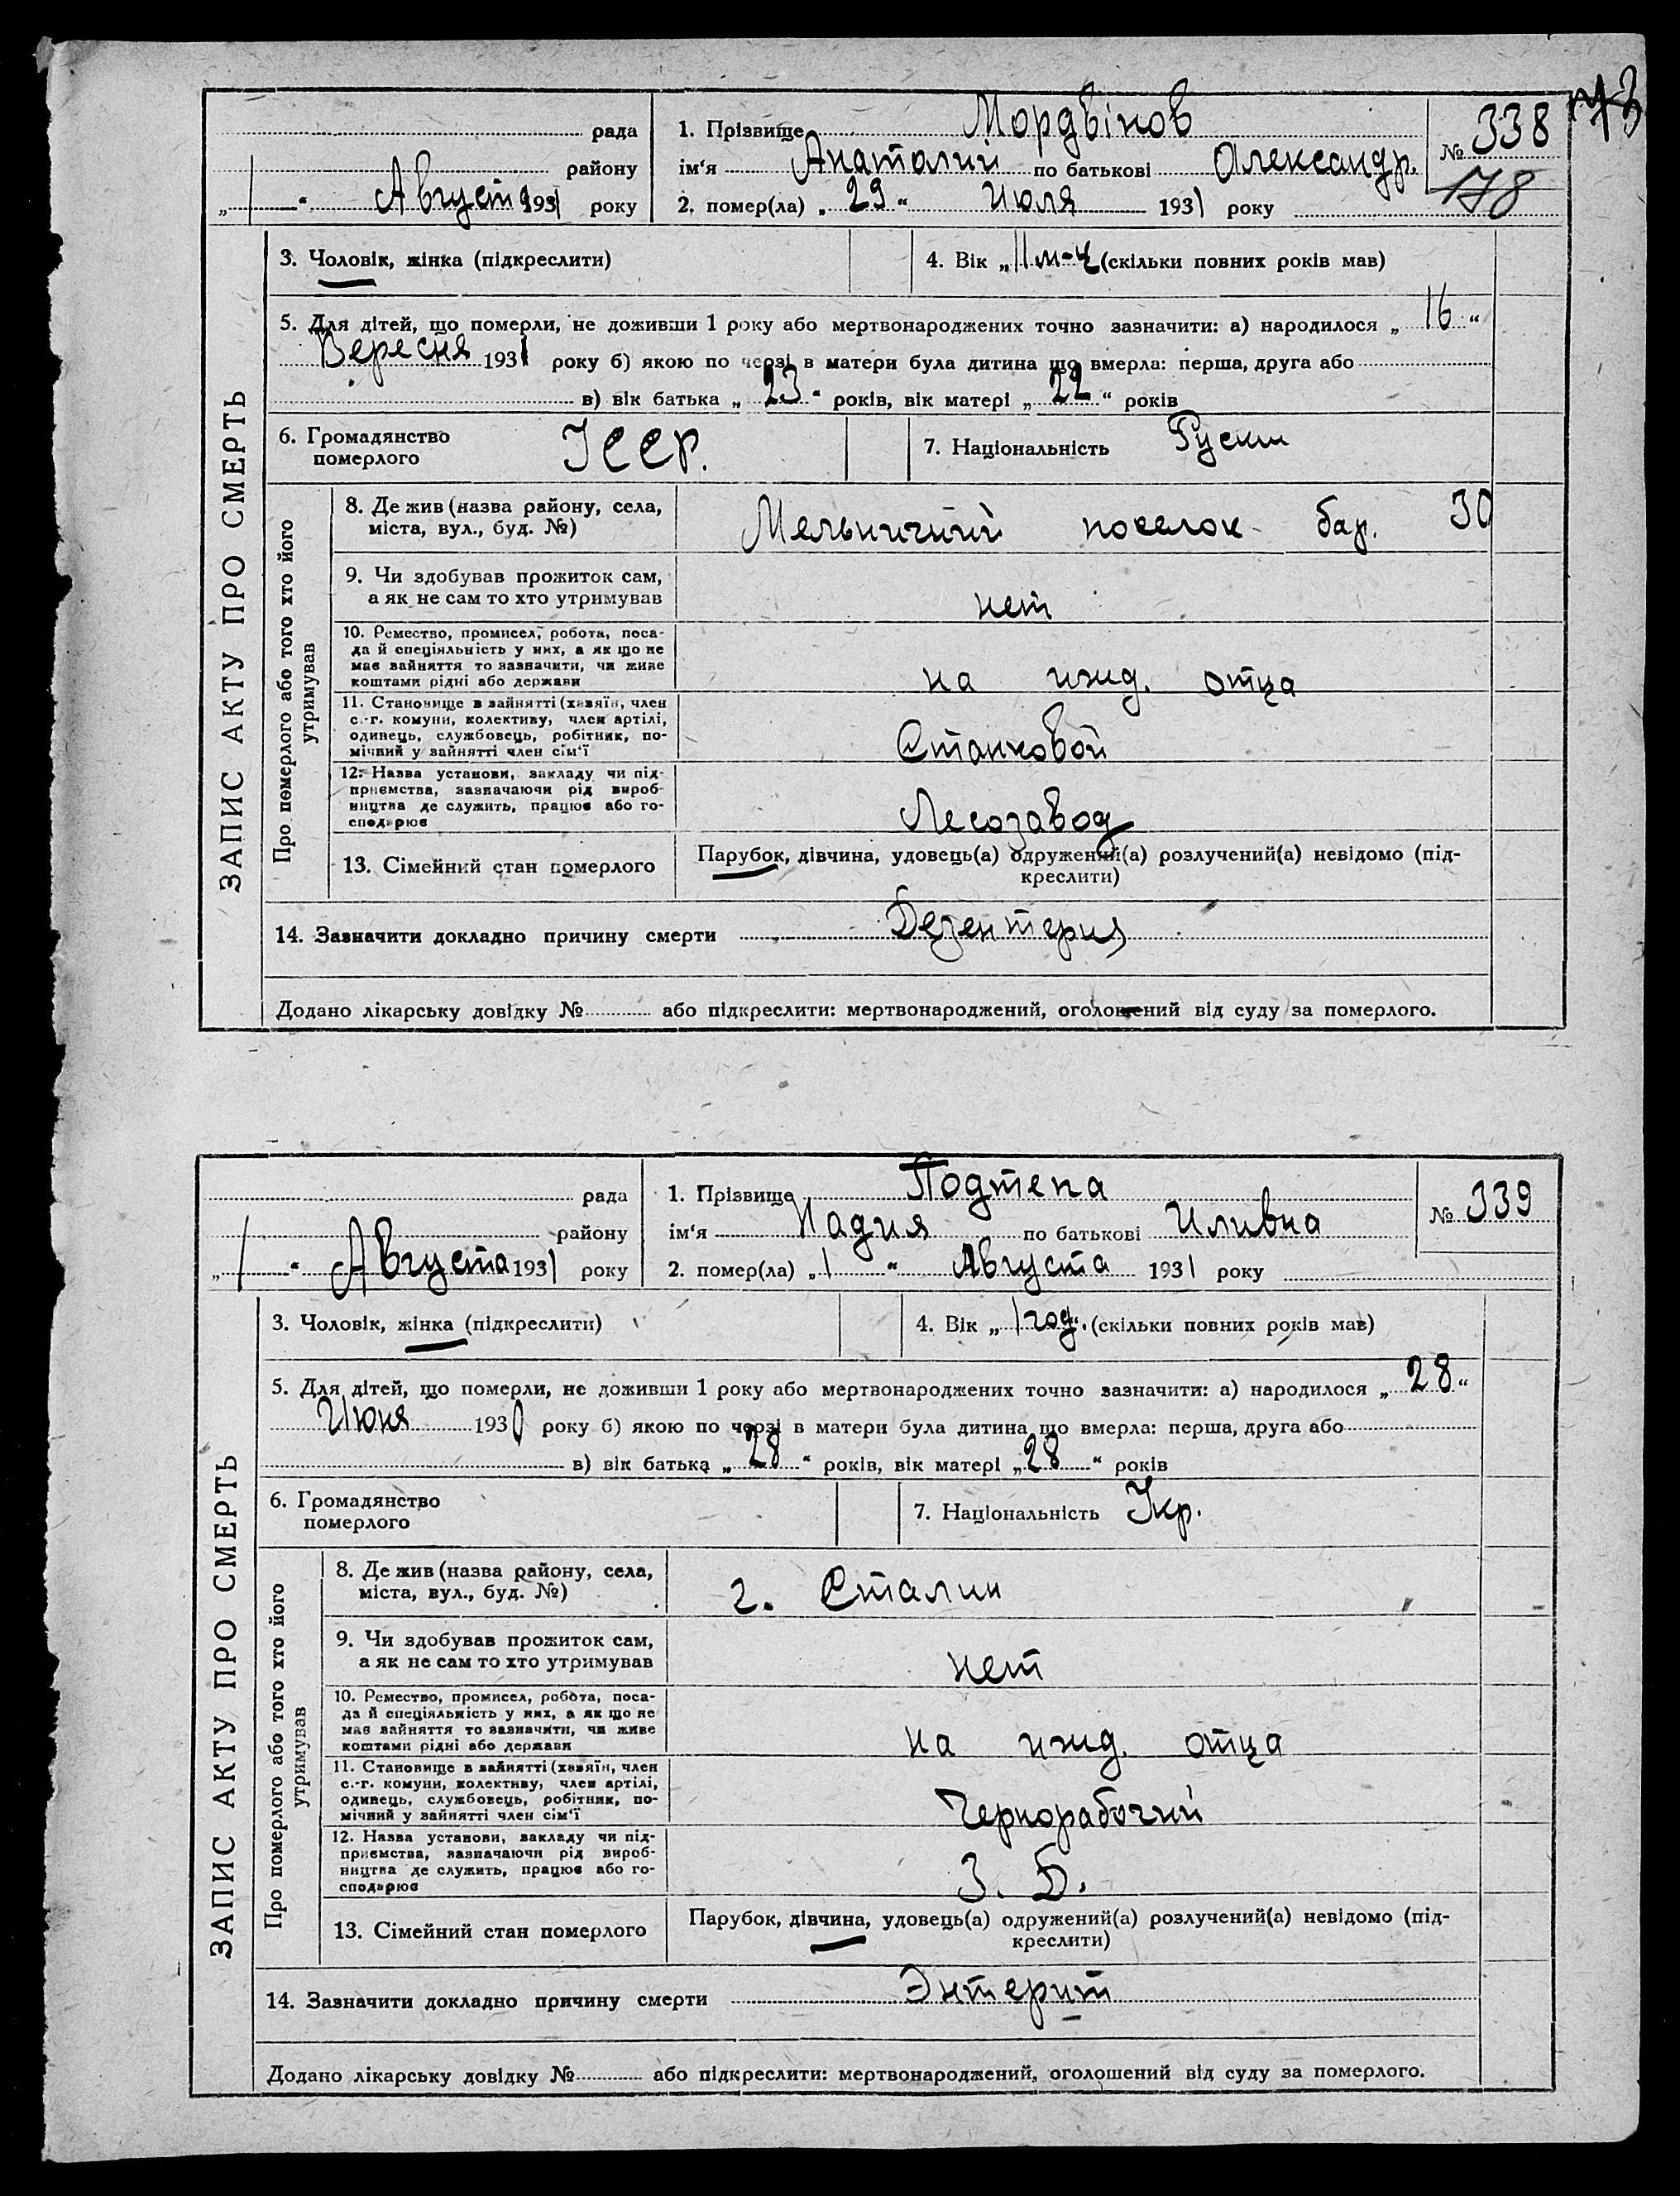 рада 1. Прізвище Мордвінов № 338
району ім'я Анатолий по батькові Александр. 178
„ 1 “ Август 1931 року 2. помер(ла) „ 29 “ Июля 1931 року
3. Чоловік, жінка (підкреслити) 4. Вік „ 11 м-ц (скільки повних років мав)
5. Для дітей, що померли, не доживши 1 року або мертвонароджених точно зазначити: а) народилося „ 16 “
Вересня 193 року б) якою по черзі в матери була дитина що вмерла: перша, друга або
в) вік батька „ 23 “ років, вік матері „ 22 “ років
6. Громадянство 7. Національність Руский
померлого УССР.
ЗАПИС АКТУ ПРО СМЕРТЬ
Про померлого або того хто його
утримував
8. Де жив (назва району, села,
міста, вул., буд. №) Мельничний поселок бар. 30
9. Чи здобував прожиток сам,
а як не сам то хто утримував нет
10. Ремество, промисел, робота, поса-
да й спеціяльність у них, а як що не
має зайняття то зазначити, чи живе
коштами рідні або держави на ижд. отца
11. Становище в зайнятті (хазяїн, член
с.-г. комуни, колективу, член артілі,
одинець, службовець, робітник, по-
мічний у зайнятті член сім'ї Станковой
12. Назва установи, закладу чи під-
приємства, зазначаючи рід вироб-
ництва де служить, працює або го-
сподарює Лесозавод
13. Сімейний стан померлого Парубок, дівчина, удовець(а) одружений(а) розлучений(а) невідомо (під-
креслити)
14. Зазначити докладно причину смерти Дезентерия
Додано лікарську довідку № або підкреслити: мертвонароджений, оголошений від суду за померлого.
рада 1. Прізвище Подтепа № 339
району ім'я Надия по батькові Иливна
„ 1 “ Августа 1931 року 2. помер(ла) „ 1 “ Августа 1931 року
3. Чоловік, жінка (підкреслити) 4. Вік „ 1 год. (скільки повних років мав)
5. Для дітей, що померли, не доживши 1 року або мертвонароджених точно зазначити: а) народилося „ 28 “
Июня 1930 року б) якою по черзі в матери була дитина що вмерла: перша, друга або
в) вік батька „ 28 “ років, вік матері „ 28 “ років
6. Громадянство 7. Національність Укр.
померлого
ЗАПИС АКТУ ПРО СМЕРТЬ
Про померлого або того хто його
утримував
8. Де жив (назва району, села,
міста, вул., буд. №) г. Сталин
9. Чи здобував прожиток сам,
а як не сам то хто утримував нет
10. Ремество, промисел, робота, поса-
да й спеціяльність у них, а як що не
має зайняття то зазначити, чи живе
коштами рідні або держави на ижд. отца
11. Становище в зайнятті (хазяїн, член
с.-г. комуни, колективу, член артілі,
одинець, службовець, робітник, по-
мічний у зайнятті член сім'ї Чернорабочий
12. Назва установи, закладу чи під-
приємства, зазначаючи рід вироб-
ництва де служить, працює або го-
сподарює З. Б.
13. Сімейний стан померлого Парубок, дівчина, удовець(а) одружений(а) розлучений(а) невідомо (під-
креслити)
14. Зазначити докладно причину смерти Энтерит
Додано лікарську довідку № або підкреслити: мертвонароджений, оголошений від суду за померлого.